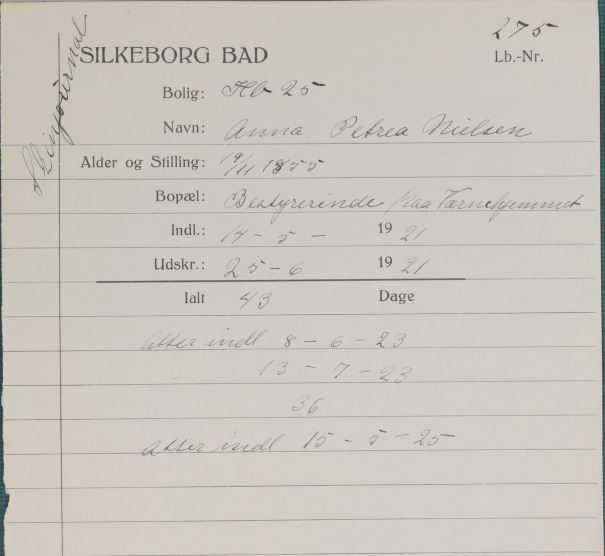 275
SILKEBORG BAD
Lb.-Nr.
Bolig: Hb 25
Navn: Anna Petrea Nielsen
Alder og Stilling: 19/11 1855
Bopæl: Bestyrerinde paa Værnehjemmet
Indl.: 14 - 5 - 19 21
Udskr.: 25 - 6 19 21
Ialt 43 Dage
Atter indl 8 - 6 - 23
13 - 7 - 23
36
Atter indl 15 - 5 - 25